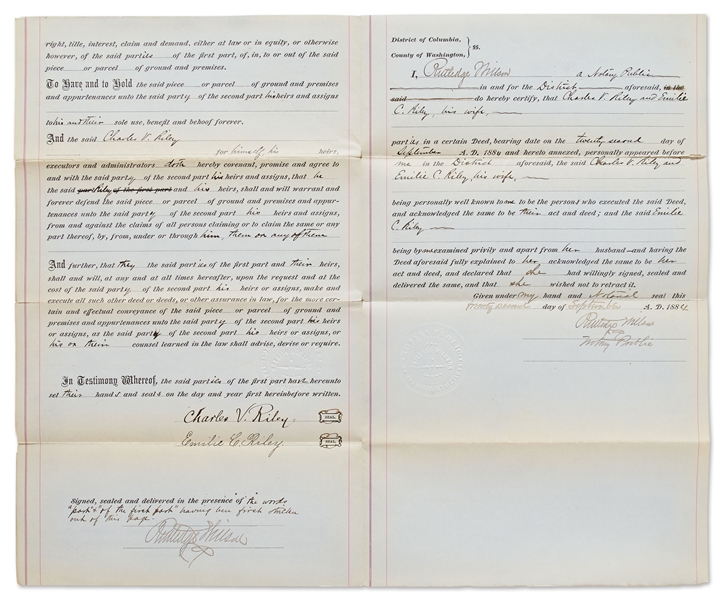 right, title, interest, claim and demand, either at law or in equity, or otherwise
however, of the said parties of the first part, of, in, to or out of the said
piece or parcel of ground and premises.
To Have and to Hold the said piece or parcel of ground and premises
and appurtenances unto the said party of the second part his heirs and assigns
to his and their sole use, benefit and behoof forever.
And the said Charles V. Riley
for himself his heirs,
executors and administrators doth hereby covenant, promise and agree to
and with the said party of the second part his heirs and assigns, that he
the said part of the first part and his heirs, shall and will warrant and
forever defend the said piece or parcel of ground and premises and appur-
tenances unto the said party of the second part his heirs and assigns,
from and against the claims of all persons claiming or to claim the same or any
part thereof, by, from, under or through him, them or any of them
And further, that they the said parties of the first part and their heirs,
shall and will, at any and at all times hereafter, upon the request and at the
cost of the said party of the second part his heirs or assigns, make and
execute all such other deed or deeds, or other assurance in law, for the more cer-
tain and effectual conveyance of the said piece or parcel of ground and
premises and appurtenances unto the said party of the second part his heirs
or assigns, as the said party of the second part his heirs or assigns, or
his or their counsel learned in the law shall advise, devise or require.
In Testimony Whereof, the said parties of the first part have hereunto
set their hands and seals on the day and year first hereinbefore written.
Charles V. Riley SEAL
Emilie C. Riley SEAL
Signed, sealed and delivered in the presence of the words
"part of the first part" having been first stricken
out of this page
Rutledge Willson
District of Columbia,
County of Washington, } ss.
I, Rutledge Willson a Notary Public
in and for the District aforesaid, in the
said do hereby certify, that Charles V. Riley and Emilie
C. Riley, his wife,
parties in a certain Deed, bearing date on the twenty second day of
September A. D. 1884 and hereto annexed, personally appeared before
me in the District aforesaid, the said Charles V. Riley and
Emilie C. Riley, his wife,
being personally well known to me to be the persons who executed the said Deed,
and acknowledged the same to be their act and deed; and the said Emilie
C. Riley
being by me examined privily and apart from her husband and having the
Deed aforesaid fully explained to her, acknowledged the same to be her
act and deed, and declared that she had willingly signed, sealed and
delivered the same, and that she wished not to retract it.
Given under my hand and Notarial seal this
twenty second day of September A. D. 1884
Rutledge Willson
Notary Public